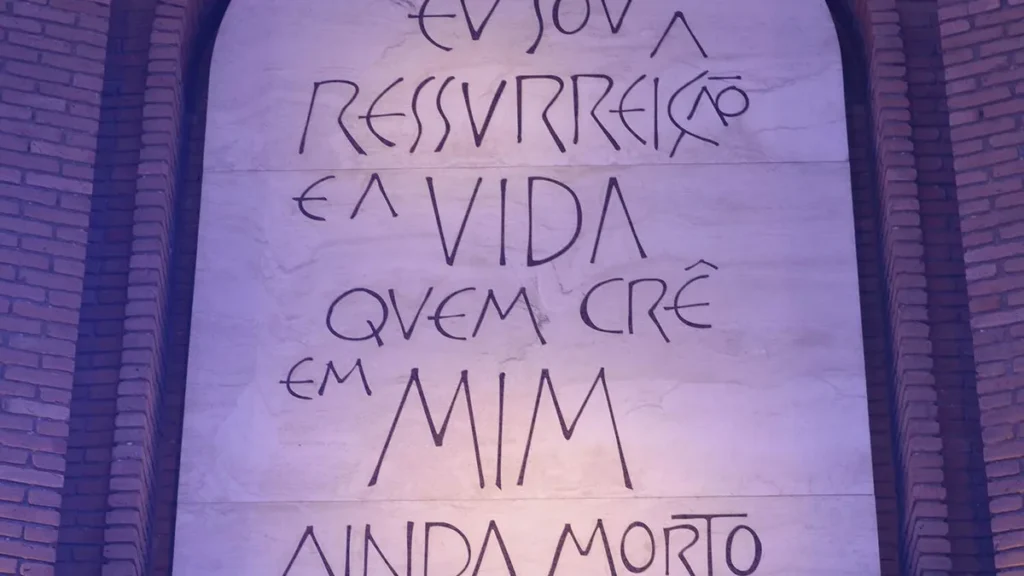 EV SOV A
RESSVRREIÇÃO
E A VIDA
QVEM CRÊ
EM MIM
AINDA MORTO